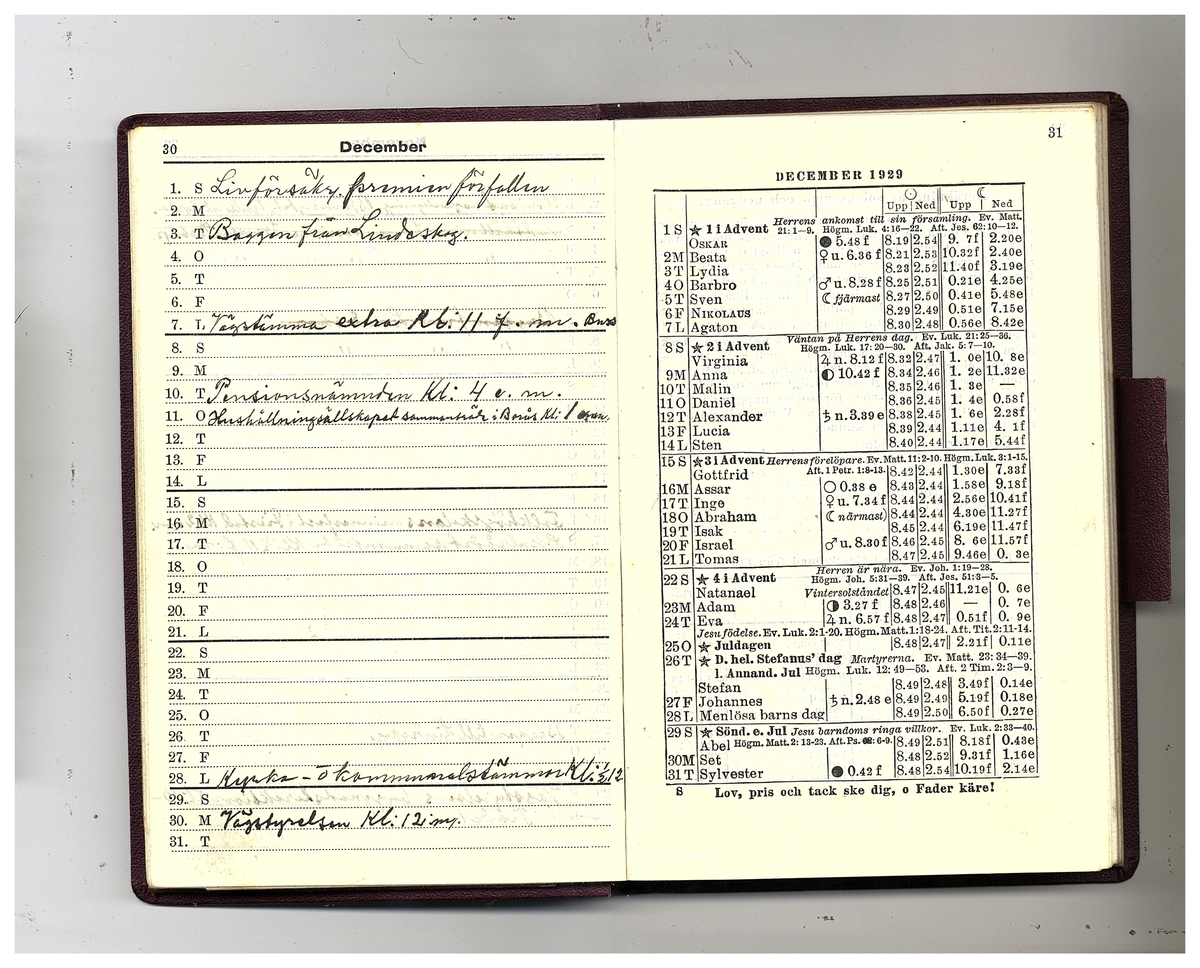 30
December
1. S Livförsäkr. premien förfallen
2. M
3. T Baggen från Lindaskog.
4. O
5. T
6. F
7. L Vägstämma extra Kl: 11 f. m.
8. S
9. M
10. T Pensionsnämnden Kl: 4 e. m.
11. O Hushållningsällskapet sammanträde i Borås Kl: 1
12. T
13. F
14. L
15. S
16. M
17. T
18. O
19. T
20. F
21. L
22. S
23. M
24. T
25. O
26. T
27. F
28. L Kyrko- o kommunalstämmor Kl: 1/2 12
29. S
30. M Vägstyrelsen Kl: 12
31. T
31
DECEMBER 1929
☉ ☾
Upp Ned Upp Ned
Herrens ankomst till sin församling. Ev. Matt.
1 S ★ 1 i Advent 21: 1–9. Högm. Luk. 4: 16–22. Aft. Jes. 62: 10–12.
OSKAR ● 5.48 f 8.19 2.54 9. 7f 2.20e
2 M Beata ♀ u. 6.36 f 8.21 2.53 10.32f 2.40e
3 T Lydia 8.23 2.52 11.40f 3.19e
4 O Barbro ♂ u. 8.28 f 8.25 2.51 0.21e 4.25e
5 T Sven ☾ fjärmast 8.27 2.50 0.41e 5.48e
6 F NIKOLAUS 8.29 2.49 0.51e 7.15e
7 L Agaton 8.30 2.48 0.56e 8.42e
Väntan på Herrens dag. Ev. Luk. 21: 25–36.
8 S ★ 2 i Advent Högm. Luk. 17: 20–30. Aft. Jak. 5: 7–10.
Virginia ♃ n. 8.12 f 8.32 2.47 1. 0e 10. 8e
9 M Anna ◐ 10.42 f 8.34 2.46 1. 2e 11.32e
10 T Malin 8.35 2.46 1. 3e —
11 O Daniel 8.36 2.45 1. 4e 0.58f
12 T Alexander ♄ n. 3.39 e 8.38 2.45 1. 6e 2.28f
13 F Lucia 8.39 2.44 1.11e 4. 1f
14 L Sten 8.40 2.44 1.17e 5.44f
15 S ★ 3 i Advent Herrens förelöpare. Ev. Matt. 11: 2-10. Högm. Luk. 3: 1-15.
Gottfrid Aft. 1 Petr. 1: 8-13. 8.42 2.44 1.30e 7.33f
16 M Assar ○ 0.38 e 8.43 2.44 1.58e 9.18f
17 T Inge ♀ u. 7.34 f 8.44 2.44 2.56e 10.41f
18 O Abraham ☾ närmast) 8.44 2.44 4.30e 11.27f
19 T Isak 8.45 2.44 6.19e 11.47f
20 F Israel ♂ u. 8.30 f 8.46 2.45 8. 6e 11.57f
21 L Tomas 8.47 2.45 9.46e 0. 3e
Herren är nära. Ev. Joh. 1: 19–28.
22 S ★ 4 i Advent Högm. Joh. 5: 31–39. Aft. Jes. 51: 3–5.
Natanael Vintersolståndet 8.47 2.45 11.21e 0. 6e
23 M Adam ◑ 3.27 f 8.48 2.46 — 0. 7e
24 T Eva ♃ n. 6.57 f 8.48 2.47 0.51f 0. 9e
Jesu födelse. Ev. Luk. 2: 1-20. Högm. Matt. 1: 18-24. Aft. Tit. 2: 11-14.
25 O ★ Juldagen 8.48 2.47 2.21f 0.11e
26 T ★ D. hel. Stefanus' dag Martyrerna. Ev. Matt. 23: 34–39.
l. Annand. Jul Högm. Luk. 12: 49–53. Aft. 2 Tim. 2: 3–9.
Stefan 8.49 2.48 3.49f 0.14e
27 F Johannes ♄ n. 2.48 e 8.49 2.49 5.19f 0.18e
28 L Menlösa barns dag 8.49 2.50 6.50f 0.27e
29 S ★ Sönd. e. Jul Jesu barndoms ringa villkor. Ev. Luk. 2: 33–40.
Abel Högm. Matt. 2: 13-23. Aft. Ps. 6-9. 8.49 2.51 8.18f 0.43e
30 M Set 8.48 2.52 9.31f 1.16e
31 T Sylvester ● 0.42 f 8.48 2.54 10.19f 2.14e
S Lov, pris och tack ske dig, o Fader käre!